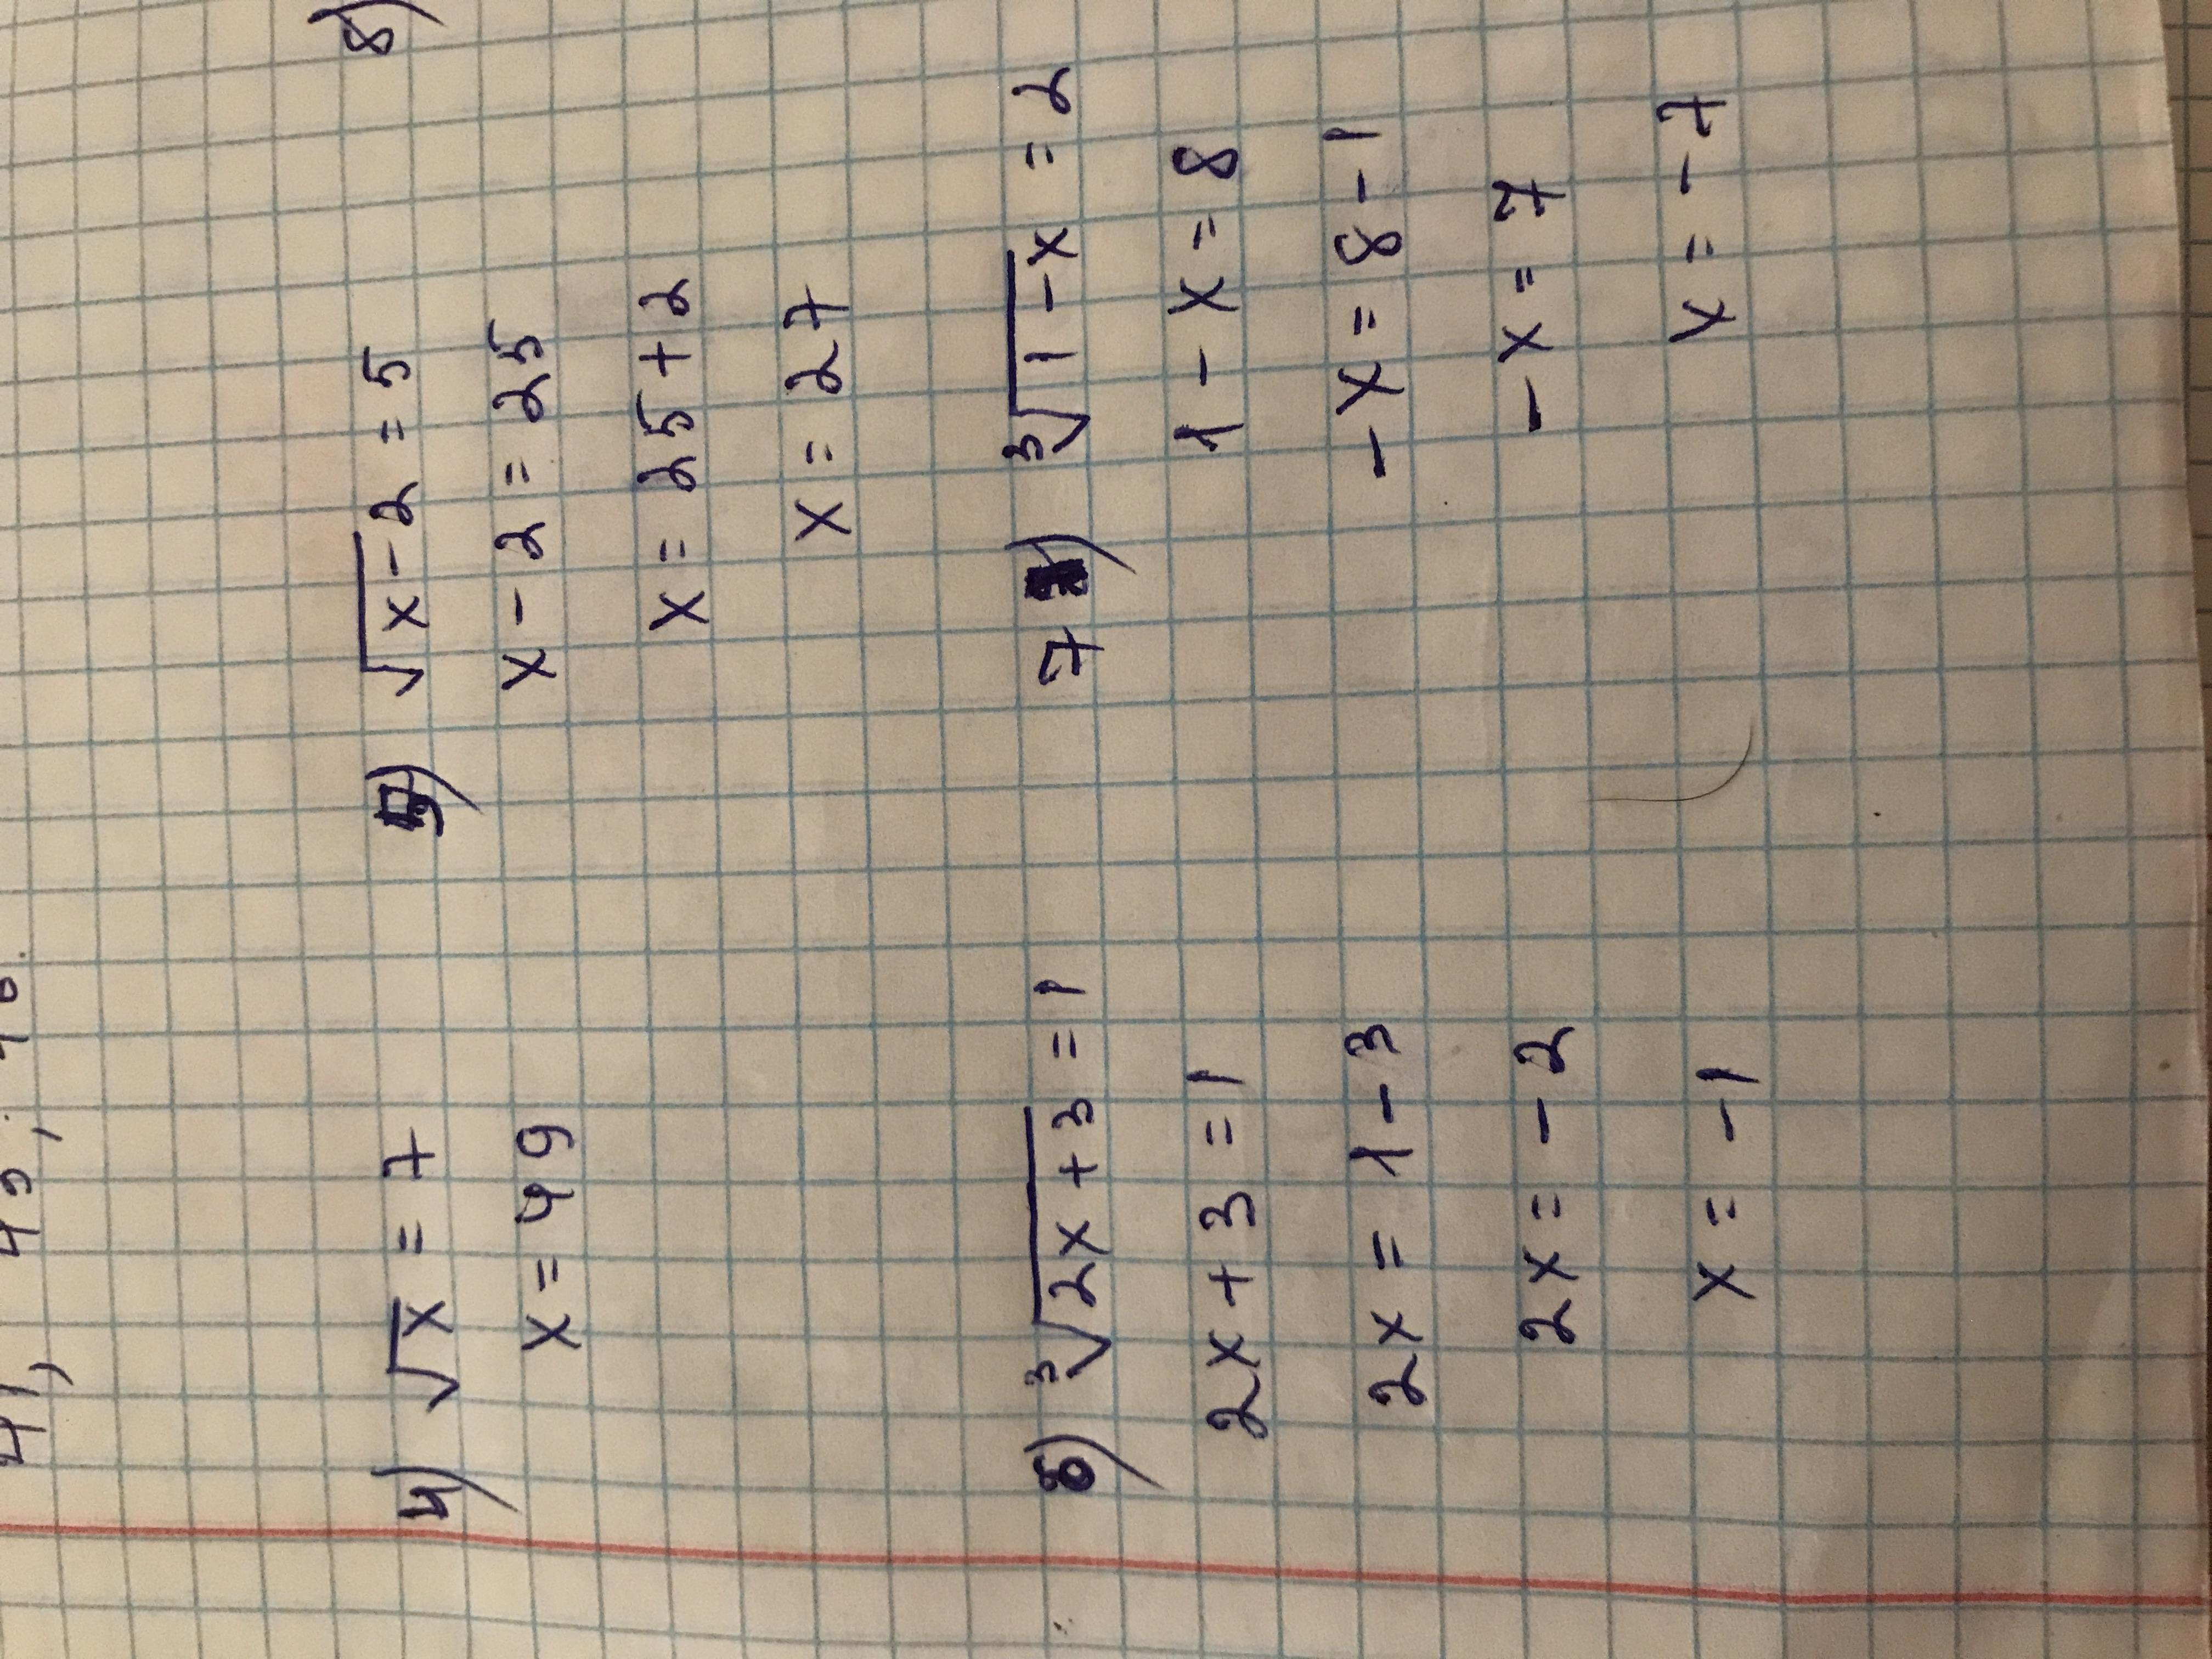 4) √x = 7
x = 49
5) √x-2 = 5
x - 2 = 25
x = 25 + 2
x = 27
8)
6) ³√2x + 3 = 1
2x + 3 = 1
2x = 1 - 3
2x = - 2
x = - 1
7) ³√1 - x = 2
1 - x = 8
- x = 8 - 1
- x = 7
x = - 7